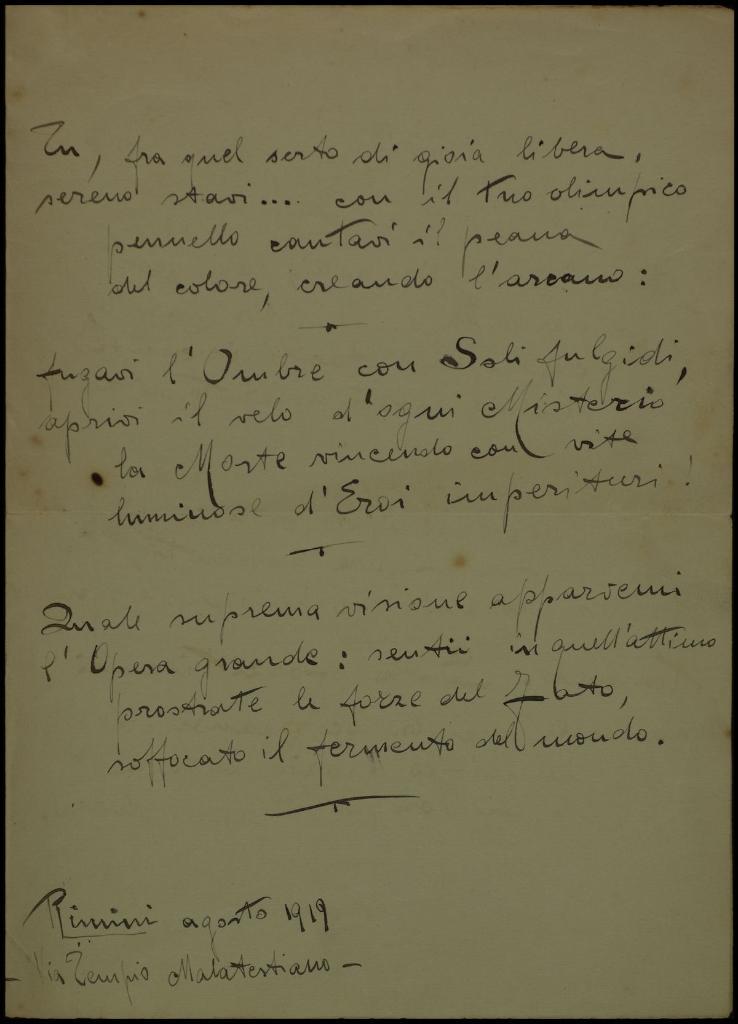 Tu, fra quel serto di gioia libera,
sereno stavi... con il tuo olimpico
pennello cantavi il peana
del colore, creando l'arcano:
fugavi l'Ombre con Soli fulgidi,
aprivi il velo d'ogni Misterio
la Morte vincendo con vite
luminose d'Eroi imperituri!
Quale suprema visione apparvemi
l'Opera grande: sentii in quell'attimo
prostrate le forze del Fato,
soffocato il fermento del mondo.
Rimini agosto 1919
- Via Tempio Malatestiano -